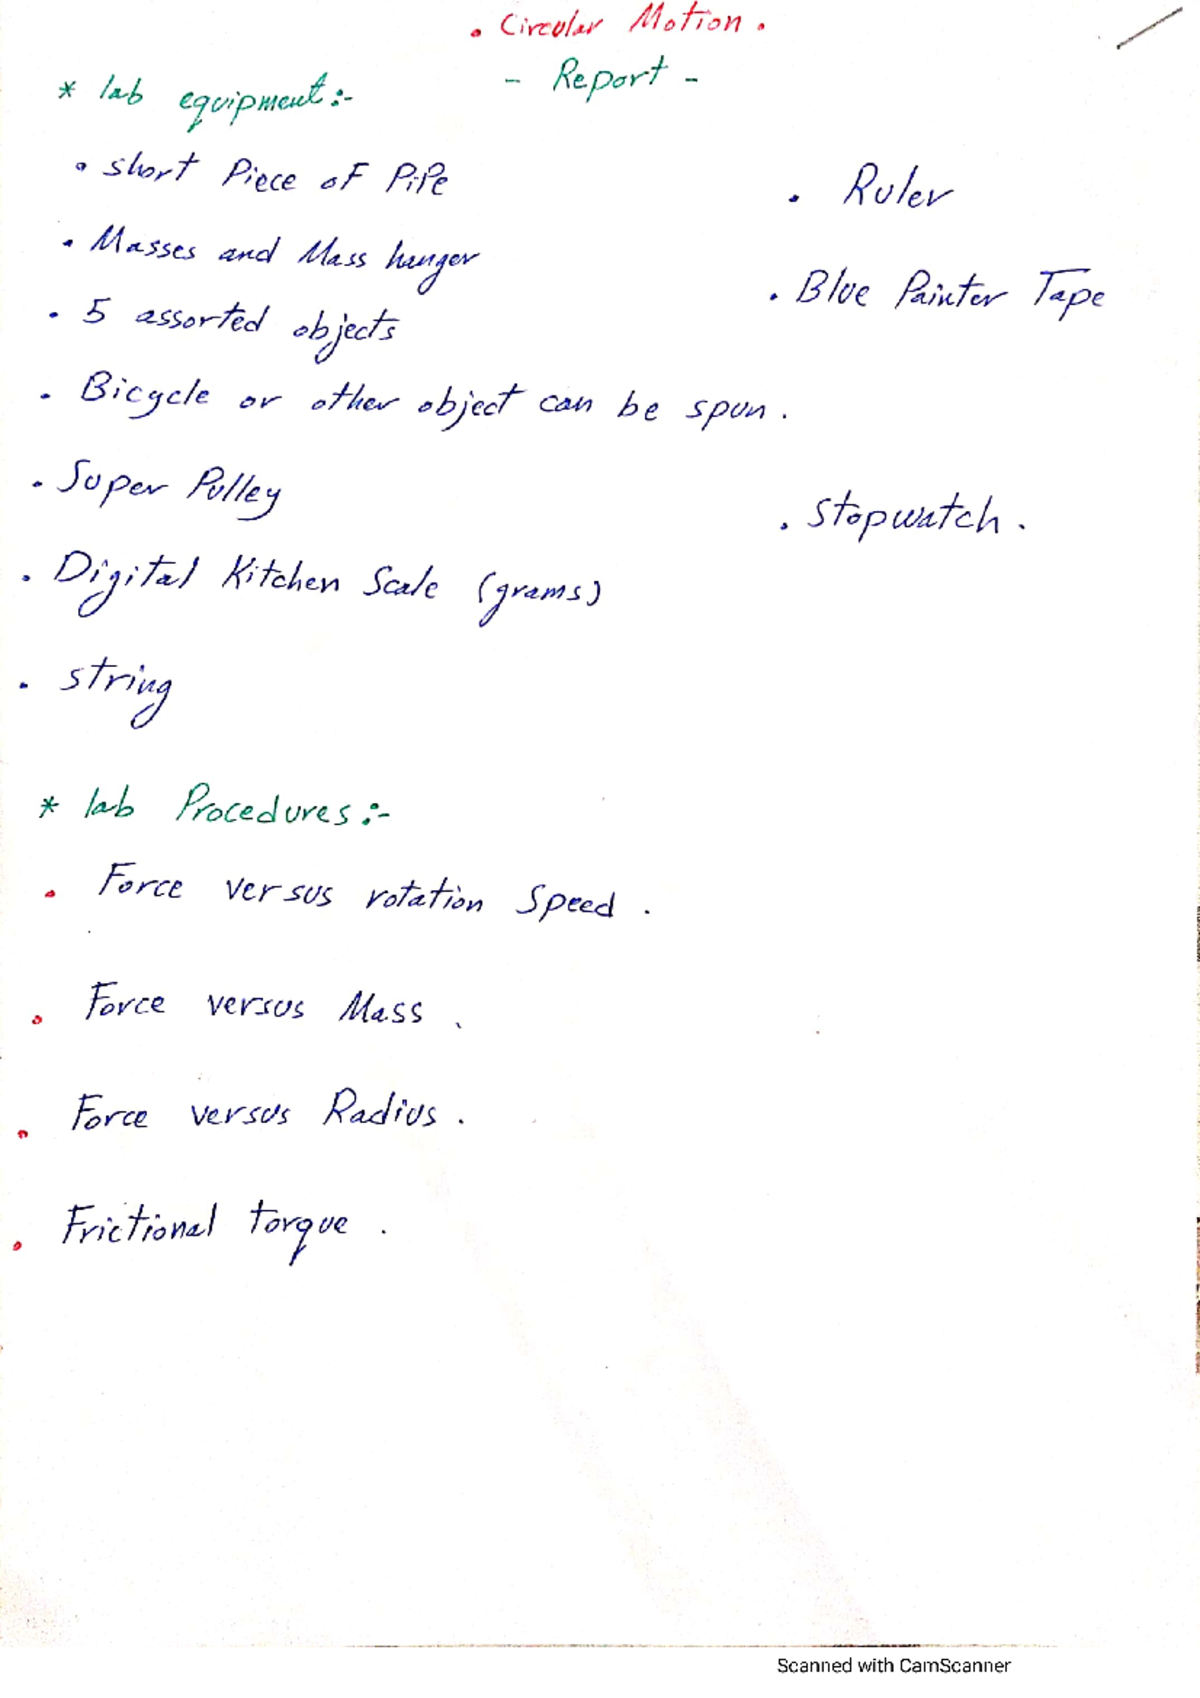 . Circular Motion .
- Report -
* lab equipment :-
• short Piece of Pipe
• Ruler
• Masses and Mass hanger
• Blue Painter Tape
• 5 assorted objects
• Bicycle or other object can be spun .
• Super Pulley
• stopwatch .
• Digital Kitchen Scale (grams)
• string
* lab Procedures :-
• Force versus rotation Speed .
• Force versus Mass .
• Force versus Radius .
• Frictional torque .
Scanned with CamScanner